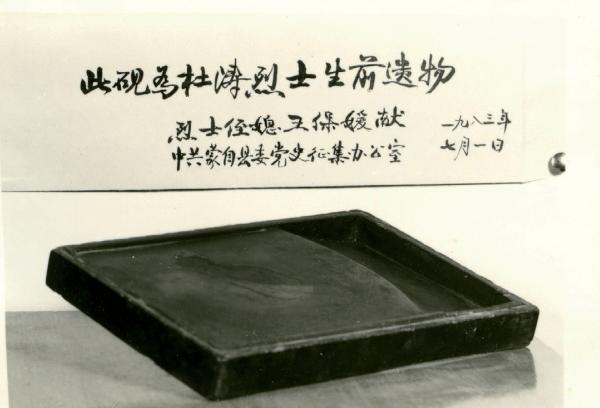 此砚为杜涛烈士生前遗物
烈士侄媳王保媛献
中共蒙自县委党史征集办公室
一九八三年
七月一日